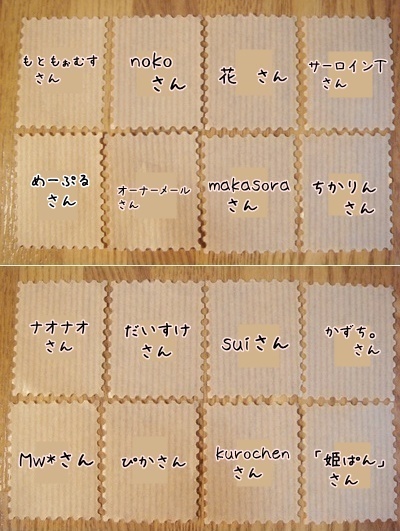 もともぉむす
さん
noko
さん
花 さん
サーロインT
さん
めーぷる
さん
オーナーメール
さん
makasora
さん
ちかりん
さん
ナオナオ
さん
だいすけ
さん
suiさん
かずち。
さん
Mw*さん
ぴかさん
kurochen
さん
「姫ぱん」
さん